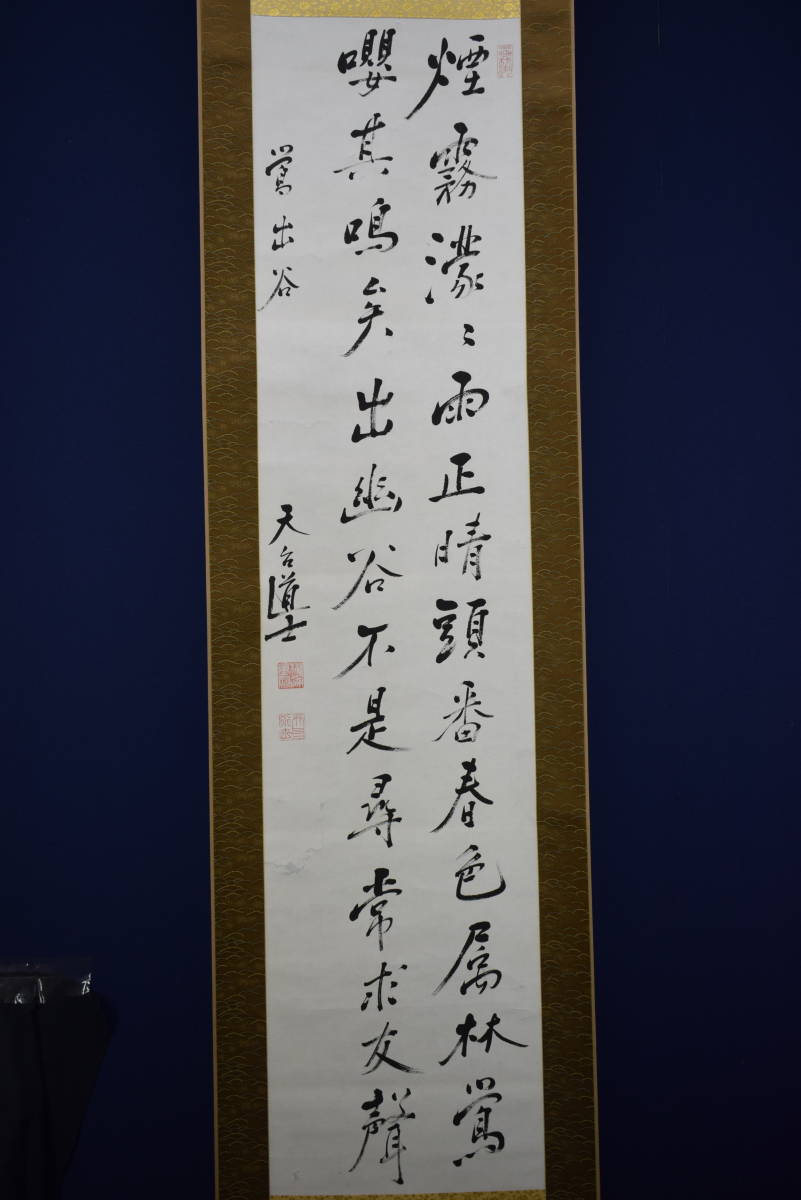 煙霧濛〻雨正晴頭番春色属林鶯
嚶其鳴矣出幽谷不是尋常求友聲
鶯出谷
天台道士